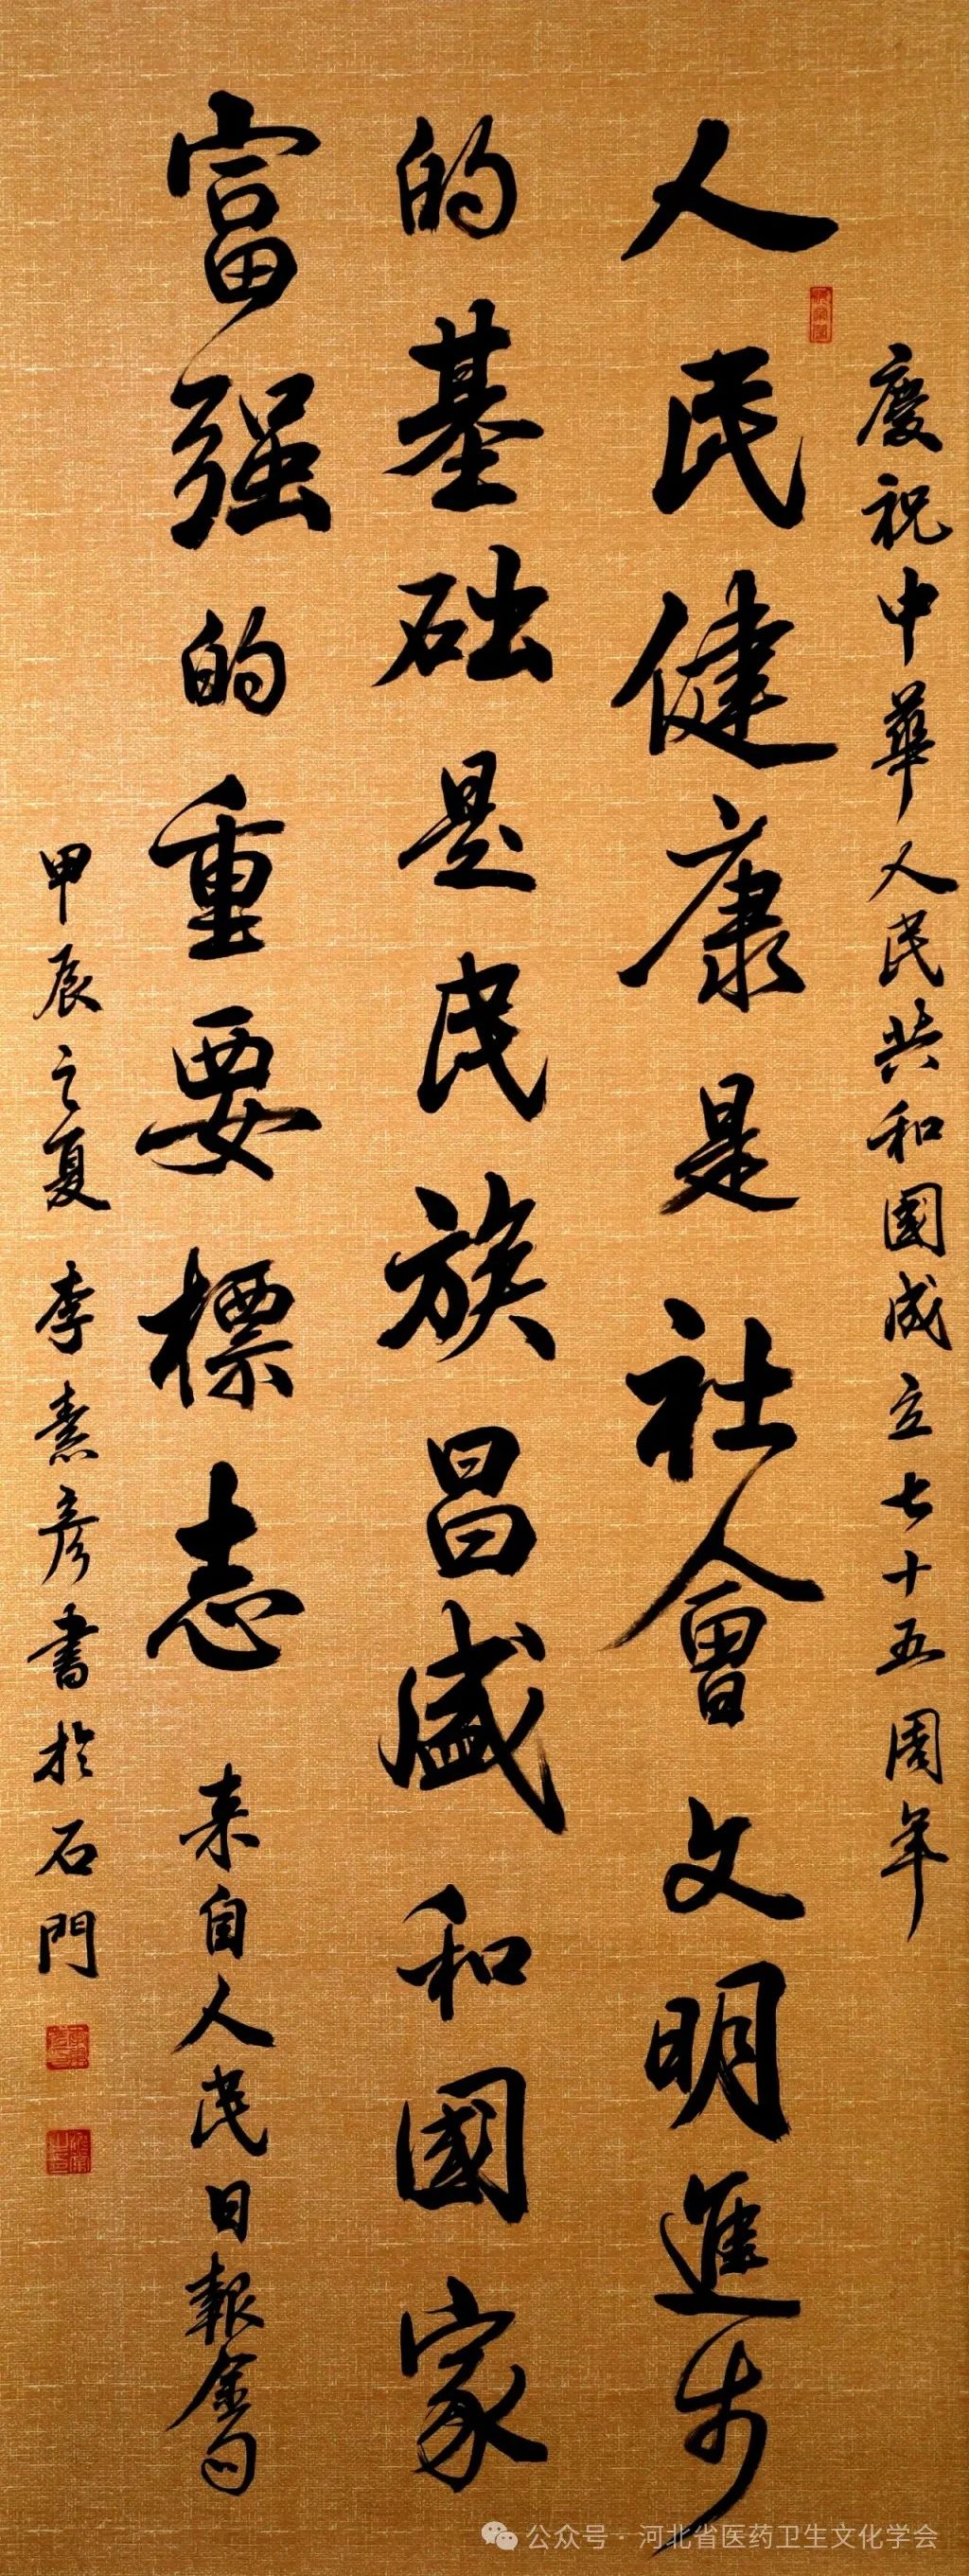 慶祝中華人民共和國成立七十五周年
人民健康是社會文明進步
的基础是民族昌盛和國家
富强的重要標志 来自人民日報金句
甲辰之夏 李素彦書於石門
公众号·河北省医药卫生文化学会